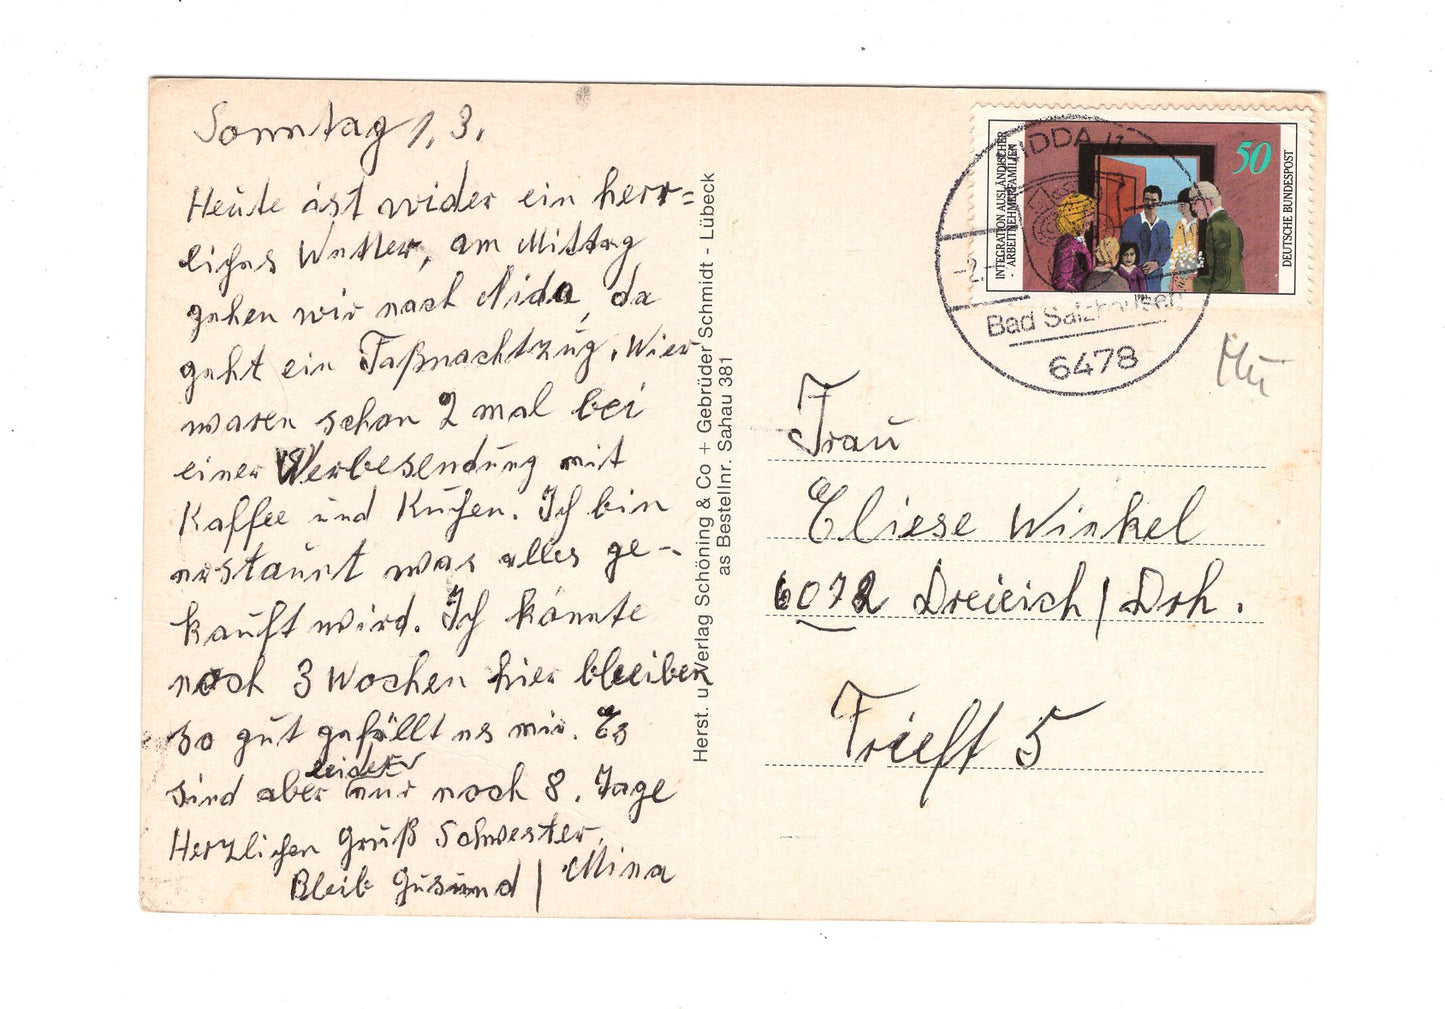 Sonntag 1.3.
Heute ist wider ein herr=
liches Wetter, am Mittag
gehen wir nach Nida, da
geht ein Faßnachtzug. Wier
waren schon 2 mal bei
einer Werbesendung mit
Kaffee und Kuchen. Ich bin
erstaunt was alles ge-
kauft wird. Ich könnte
noch 3 Wochen hier bleiben
so gut gefällt es mir. Es
leider
sind aber nur noch 8. Tage
Herzlichen Gruß Schwester,
Bleib Gesund / Mina
Herst. u. Verlag Schöning & Co + Gebrüder Schmidt - Lübeck
as Bestellnr. Sahau 381
INTEGRATION AUSLÄNDISCHER
ARBEITNEHMERFAMILIEN
50
DEUTSCHE BUNDESPOST
NIDDA 11
-2.
Bad Salzhausen
6478
Frau
Eliese Winkel
6072 Dreieich / Drh.
Trieft 5